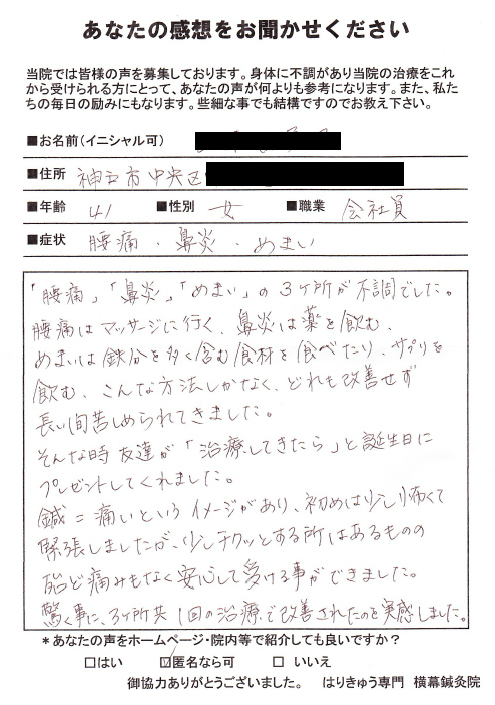 あなたの感想をお聞かせください
当院では皆様の声を募集しております。身体に不調があり当院の治療をこれ
から受けられる方にとって、あなたの声が何よりも参考になります。また、私た
ちの毎日の励みにもなります。些細な事でも結構ですのでお教え下さい。
■お名前(イニシャル可)
■住所 神戸市中央区
■年齢 41 ■性別 女 ■職業 会社員
■症状 腰痛・鼻炎・めまい
「腰痛」「鼻炎」「めまい」の3ヶ所が不調でした。
腰痛はマッサージに行く、鼻炎は薬を飲む、
めまいは鉄分を多く含む食材を食べたり、サプリを
飲む、こんな方法しかなく、どれも改善せず
長い間苦しめられてきました。
そんな時友達が「治療してきたら」と誕生日に
プレゼントしてくれました。
鍼=痛いというイメージがあり、初めは少し怖くて
緊張しましたが、少しチクッとする所はあるものの
殆ど痛みもなく安心して受ける事ができました。
驚く事に、3ヶ所共1回の治療で改善されたのを実感しました。
*あなたの声をホームページ・院内等で紹介しても良いですか?
□はい ☑匿名なら可 □いいえ
御協力ありがとうございました。 はりきゅう専門 横幕鍼灸院